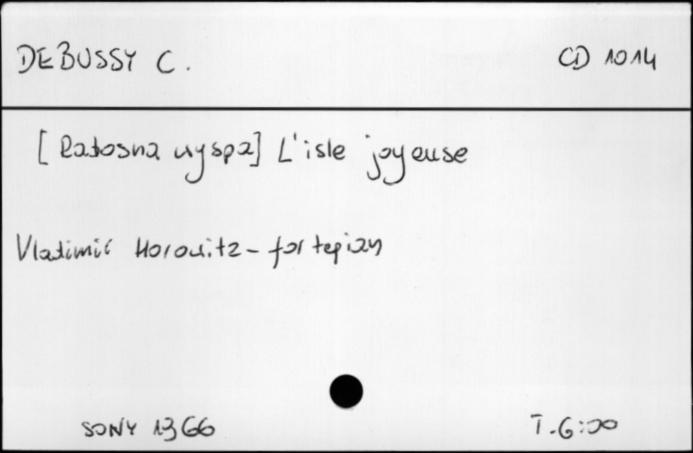 DEBUSSY C. CD 1014
[Radosna wyspa] L'isle joyeuse
Vladimir Horowitz – fortepian
SONY 1366 T. 6:00